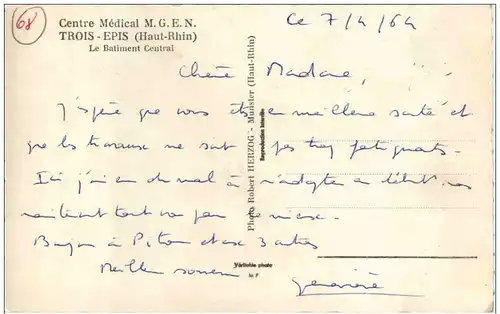 68
Centre Médical M.G.E.N.
TROIS-EPIS (Haut-Rhin)
Le Batiment Central
Ce 7/4/64
Chère Madame,
J'espère que vous êtes en meilleure santé et
que les travaux ne sont pas trop fatigants.
Ici j'ai eu du mal à m'adapter au début mais
maintenant tout va un peu de mieux.
Bonjour à et aux 3 autres
Meilleur souvenir
Geneviève
Photo Robert HERZOG - Munster (Haut-Rhin)
Reproduction Interdite
Véritable photo